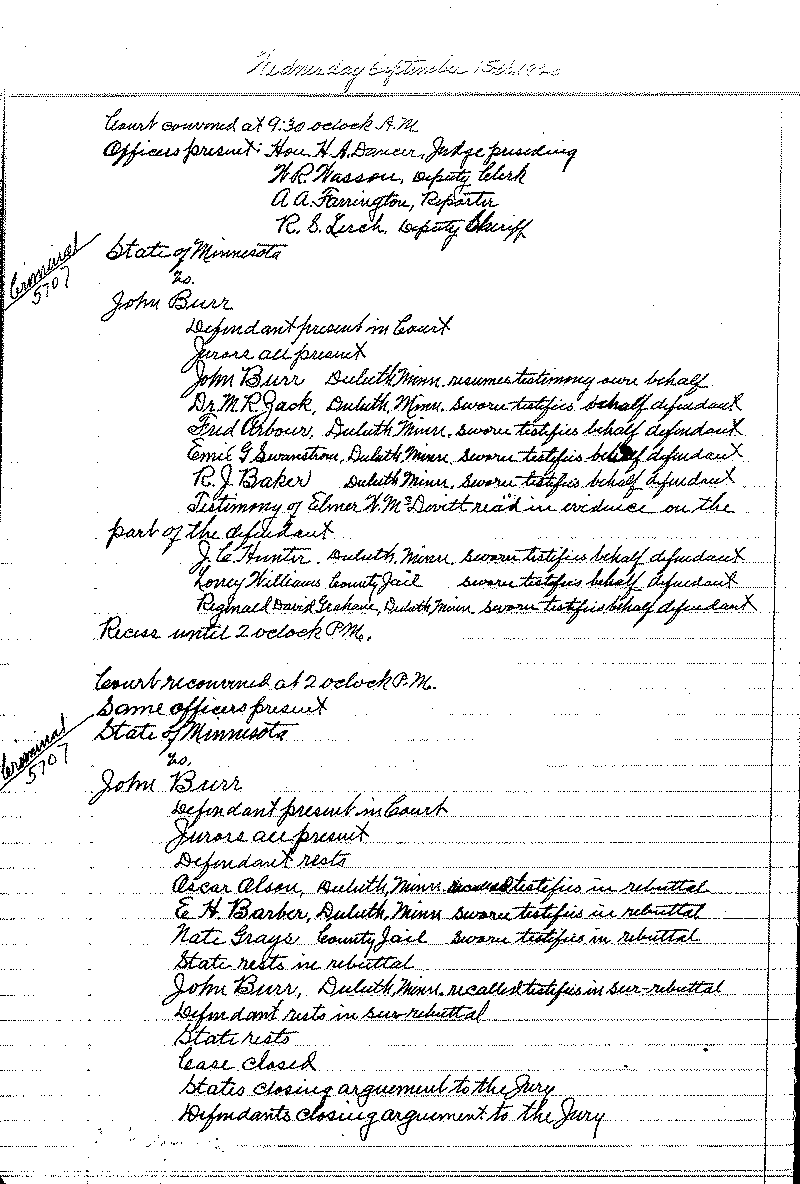 Wednesday September 15th 1920
Court convened at 9:30 oclock A.M.
Officers present: Hon. H. A. Dancer, Judge presiding
W. R. Wasson, Deputy Clerk
A. A. Farrington, Reporter
R. S. Lerch, Deputy Sheriff
Criminal
5707
State of Minnesota
vs.
John Burr
Defendant present in Court
Jurors all present
John Burr Duluth, Minn. resumes testimony own behalf
Dr. M. R. Jack, Duluth, Minn. sworn testifies behalf defendant
Fred Arbour, Duluth Minn. sworn testifies behalf defendant
Emil G. Swanstrom, Duluth, Minn. sworn testifies behalf defendant
R. J. Baker Duluth Minn, sworn testifies behalf defendant
Testimony of Elmer W. McDevitt read in evidence on the
part of the defendant
J. C. Hunter. Duluth, Minn. sworn testifies behalf defendant
Williams County Jail sworn testifies behalf defendant
Reginald David Grahame, Duluth Minn sworn testifies behalf defendant
Recess until 2 oclock P.M.
Court reconvened at 2 oclock P.M.
Same officers present
Criminal
5707
State of Minnesota
vs.
John Burr
Defendant present in Court
Jurors all present
Defendant rests
Oscar Olson, Duluth, Minn recalled testifies in rebuttal
E. H. Barber, Duluth, Minn sworn testifies in rebuttal
Nate Grays County Jail sworn testifies in rebuttal
State rests in rebuttal
John Burr, Duluth, Minn. recalled testifies in sur-rebuttal
Defendant rests in sur-rebuttal
State rests
Case closed
States closing arguement to the Jury
Defendants closing arguement to the Jury